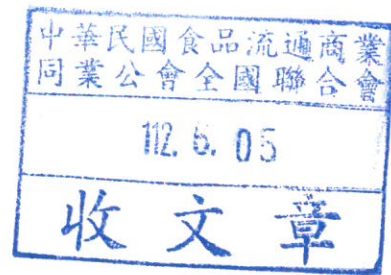 中華民國食品流通商業
同業公會全國聯合會
112. 6. 05
收文章